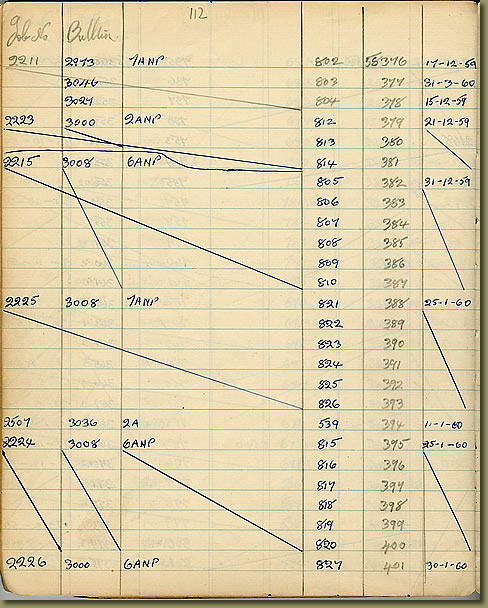 112
Job No Bulletin
2211 2973 7ANP 802 58376 17-12-59
3046 803 377 31-3-60
3027 804 378 15-12-59
2223 3000 2ANP 812 379 21-12-59
813 380
2215 3008 6ANP 814 381
805 382 31-12-59
806 383
807 384
808 385
809 386
810 387
2225 3008 7ANP 821 388 25-1-60
822 389
823 390
824 391
825 392
826 393
2507 3036 2A 539 394 11-1-60
2224 3008 6ANP 815 395 25-1-60
816 396
817 397
818 398
819 399
820 400
2226 3000 6ANP 827 401 30-1-60